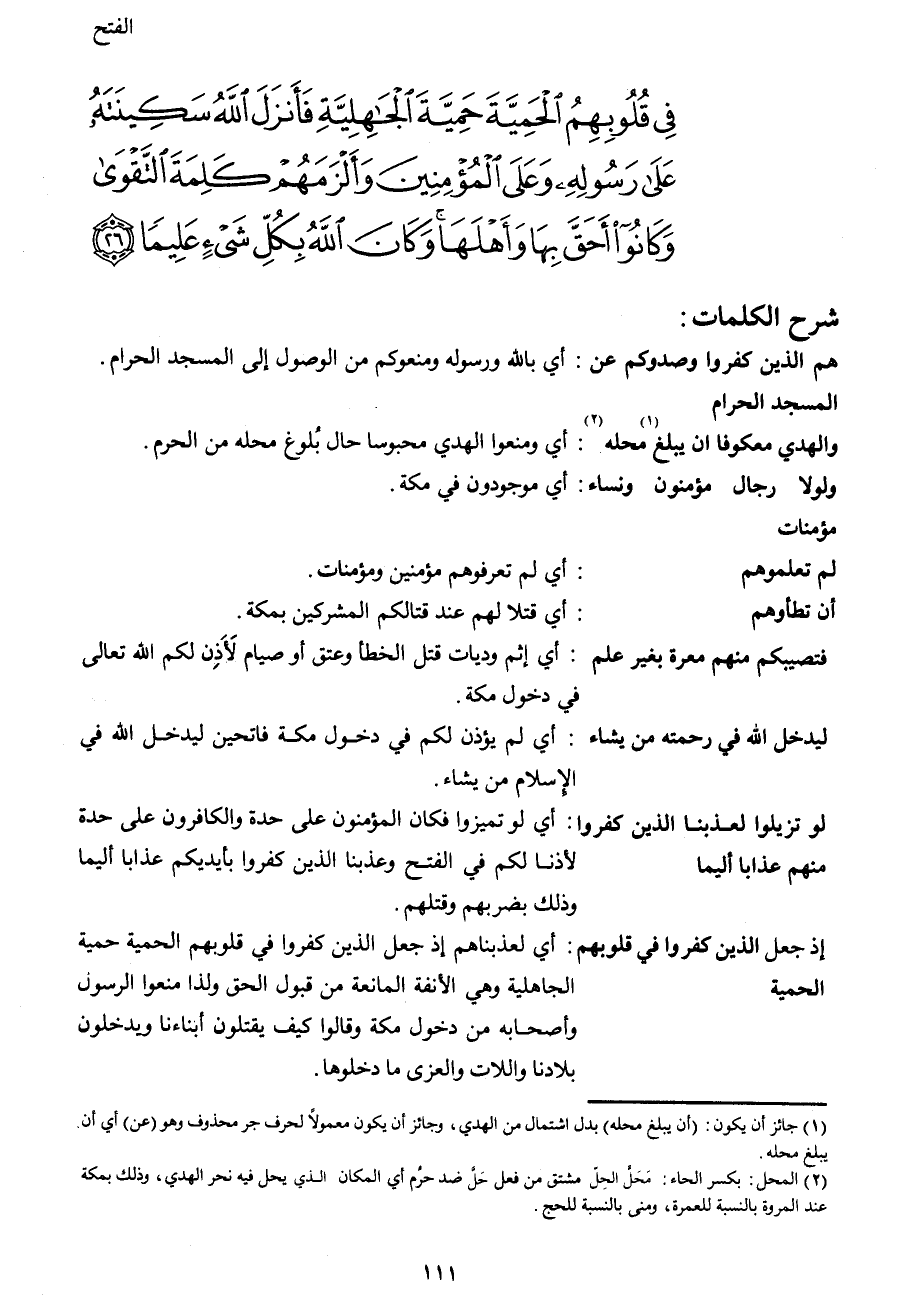 الفتح
فِى قُلُوبِهِمُ ٱلْحَمِيَّةَ حَمِيَّةَ ٱلْجَٰهِلِيَّةِ فَأَنزَلَ ٱللَّهُ سَكِينَتَهُۥ
عَلَىٰ رَسُولِهِۦ وَعَلَى ٱلْمُؤْمِنِينَ وَأَلْزَمَهُمْ كَلِمَةَ ٱلتَّقْوَىٰ
وَكَانُوٓا۟ أَحَقَّ بِهَا وَأَهْلَهَا ۚ وَكَانَ ٱللَّهُ بِكُلِّ شَىْءٍ عَلِيمًا ٢٦
شرح الكلمات :
هم الذين كفروا وصدوكم عن : أي بالله ورسوله ومنعوكم من الوصول إلى المسجد الحرام .
المسجد الحرام
والهدي معكوفا ان يبلغ (١) محله (٢) : أي ومنعوا الهدي محبوسا حال بُلوغ محله من الحرم .
ولولا رجال مؤمنون ونساء : أي موجودون في مكة .
مؤمنات
لم تعلموهم : أي لم تعرفوهم مؤمنين ومؤمنات .
أن تطأوهم : أي قتلا لهم عند قتالكم المشركين بمكة .
فتصيبكم منهم معرة بغير علم : أي إثم وديات قتل الخطأ وعتق أو صيام لَأَذِن لكم الله تعالى
في دخول مكة .
ليدخل الله في رحمته من يشاء : أي لم يؤذن لكم في دخول مكة فاتحين ليدخل الله في
الإسلام من يشاء .
لو تزيلوا لعذبنا الذين كفروا : أي لو تميزوا فكان المؤمنون على حدة والكافرون على حدة
منهم عذابا أليما لأذنا لكم في الفتح وعذبنا الذين كفروا بأيديكم عذابا أليما
وذلك بضربهم وقتلهم .
إذ جعل الذين كفروا في قلوبهم : أي لعذبناهم إذ جعل الذين كفروا في قلوبهم الحمية حمية
الحمية الجاهلية وهي الأنفة المانعة من قبول الحق ولذا منعوا الرسول
وأصحابه من دخول مكة وقالوا كيف يقتلون أبناءنا ويدخلون
بلادنا واللات والعزى ما دخلوها .
(١) جائز أن يكون : (أن يبلغ محله) بدل اشتمال من الهدي ، وجائز أن يكون معمولاً لحرف جر محذوف وهو (عن) أي أن
يبلغ محله .
(٢) المحل : بكسر الحاء : مَحَلُّ الحِلّ مشتق من فعل حَلَّ ضد حرُم أي المكان الذي يحل فيه نحر الهدي ، وذلك بمكة
عند المروة بالنسبة للعمرة ، ومنى بالنسبة للحج .
١١١